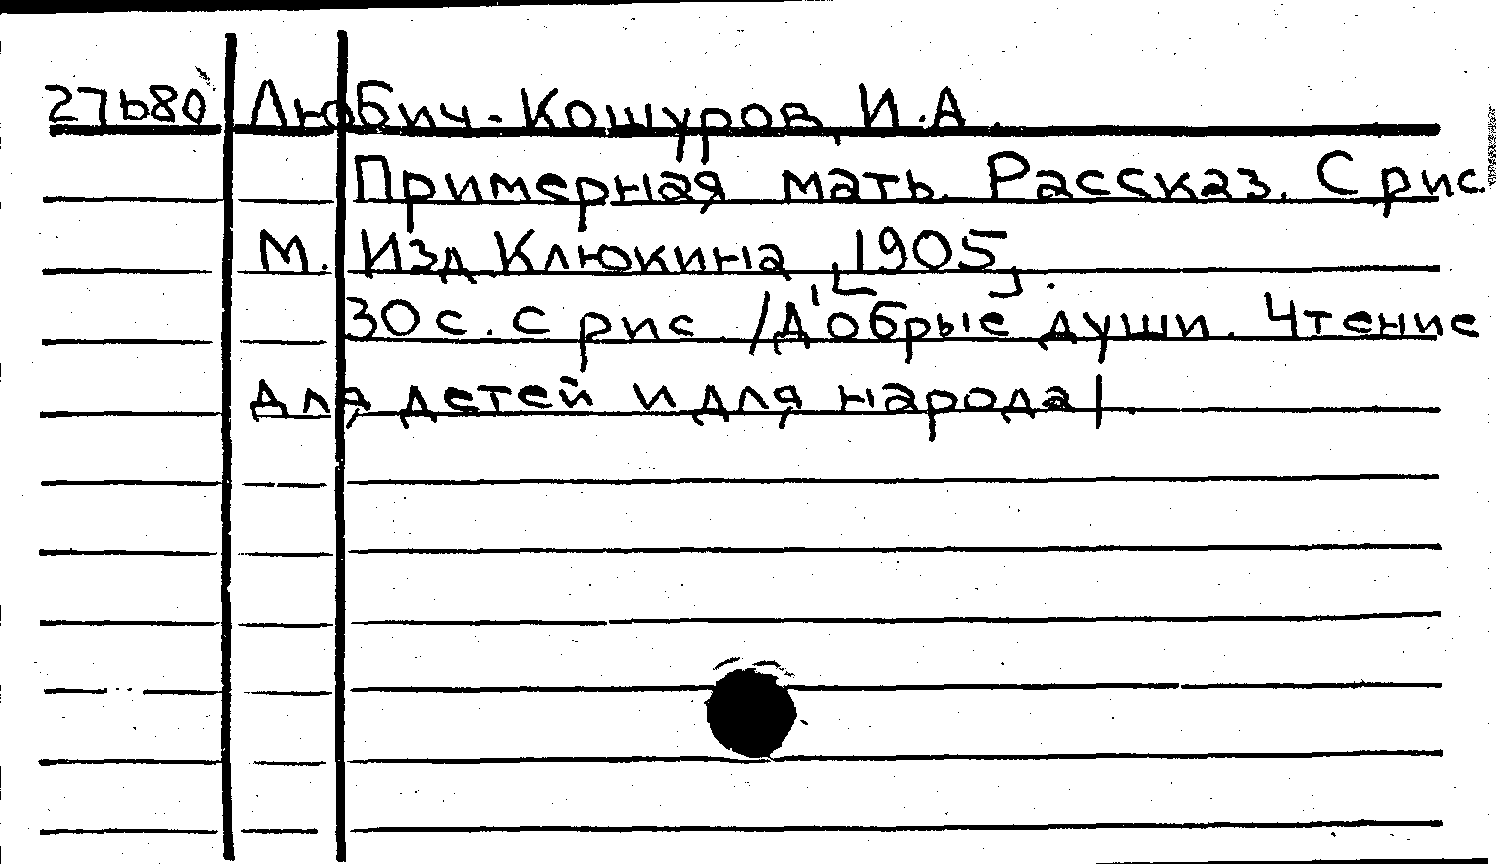 27680 Любич-Кошуров, И.А.
Примерная мать. Рассказ. С рис.
М. Изд Клюкина, [1905].
30 с. с рис /Добрые души. Чтение
для детей и для народа/.